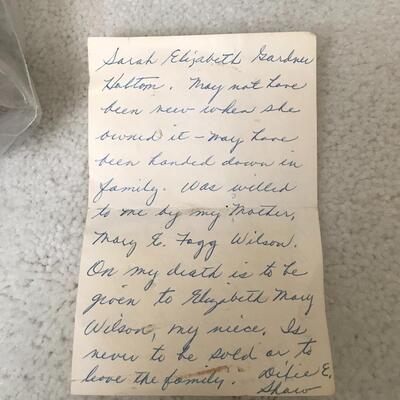 Sarah Elizabeth Gardner
Holtom. May not have
been new when she
owned it - may have
been handed down in
family. Was willed
to me by my Mother,
Mary E. Fogg Wilson.
On my death is to be
given to Elizabeth Mary
Wilson, my niece. Is
never to be sold or to
leave the family. Dixie E.
Shaw